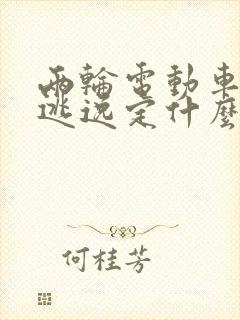 兩輪電動車
逃逸定什麼
何桂芳